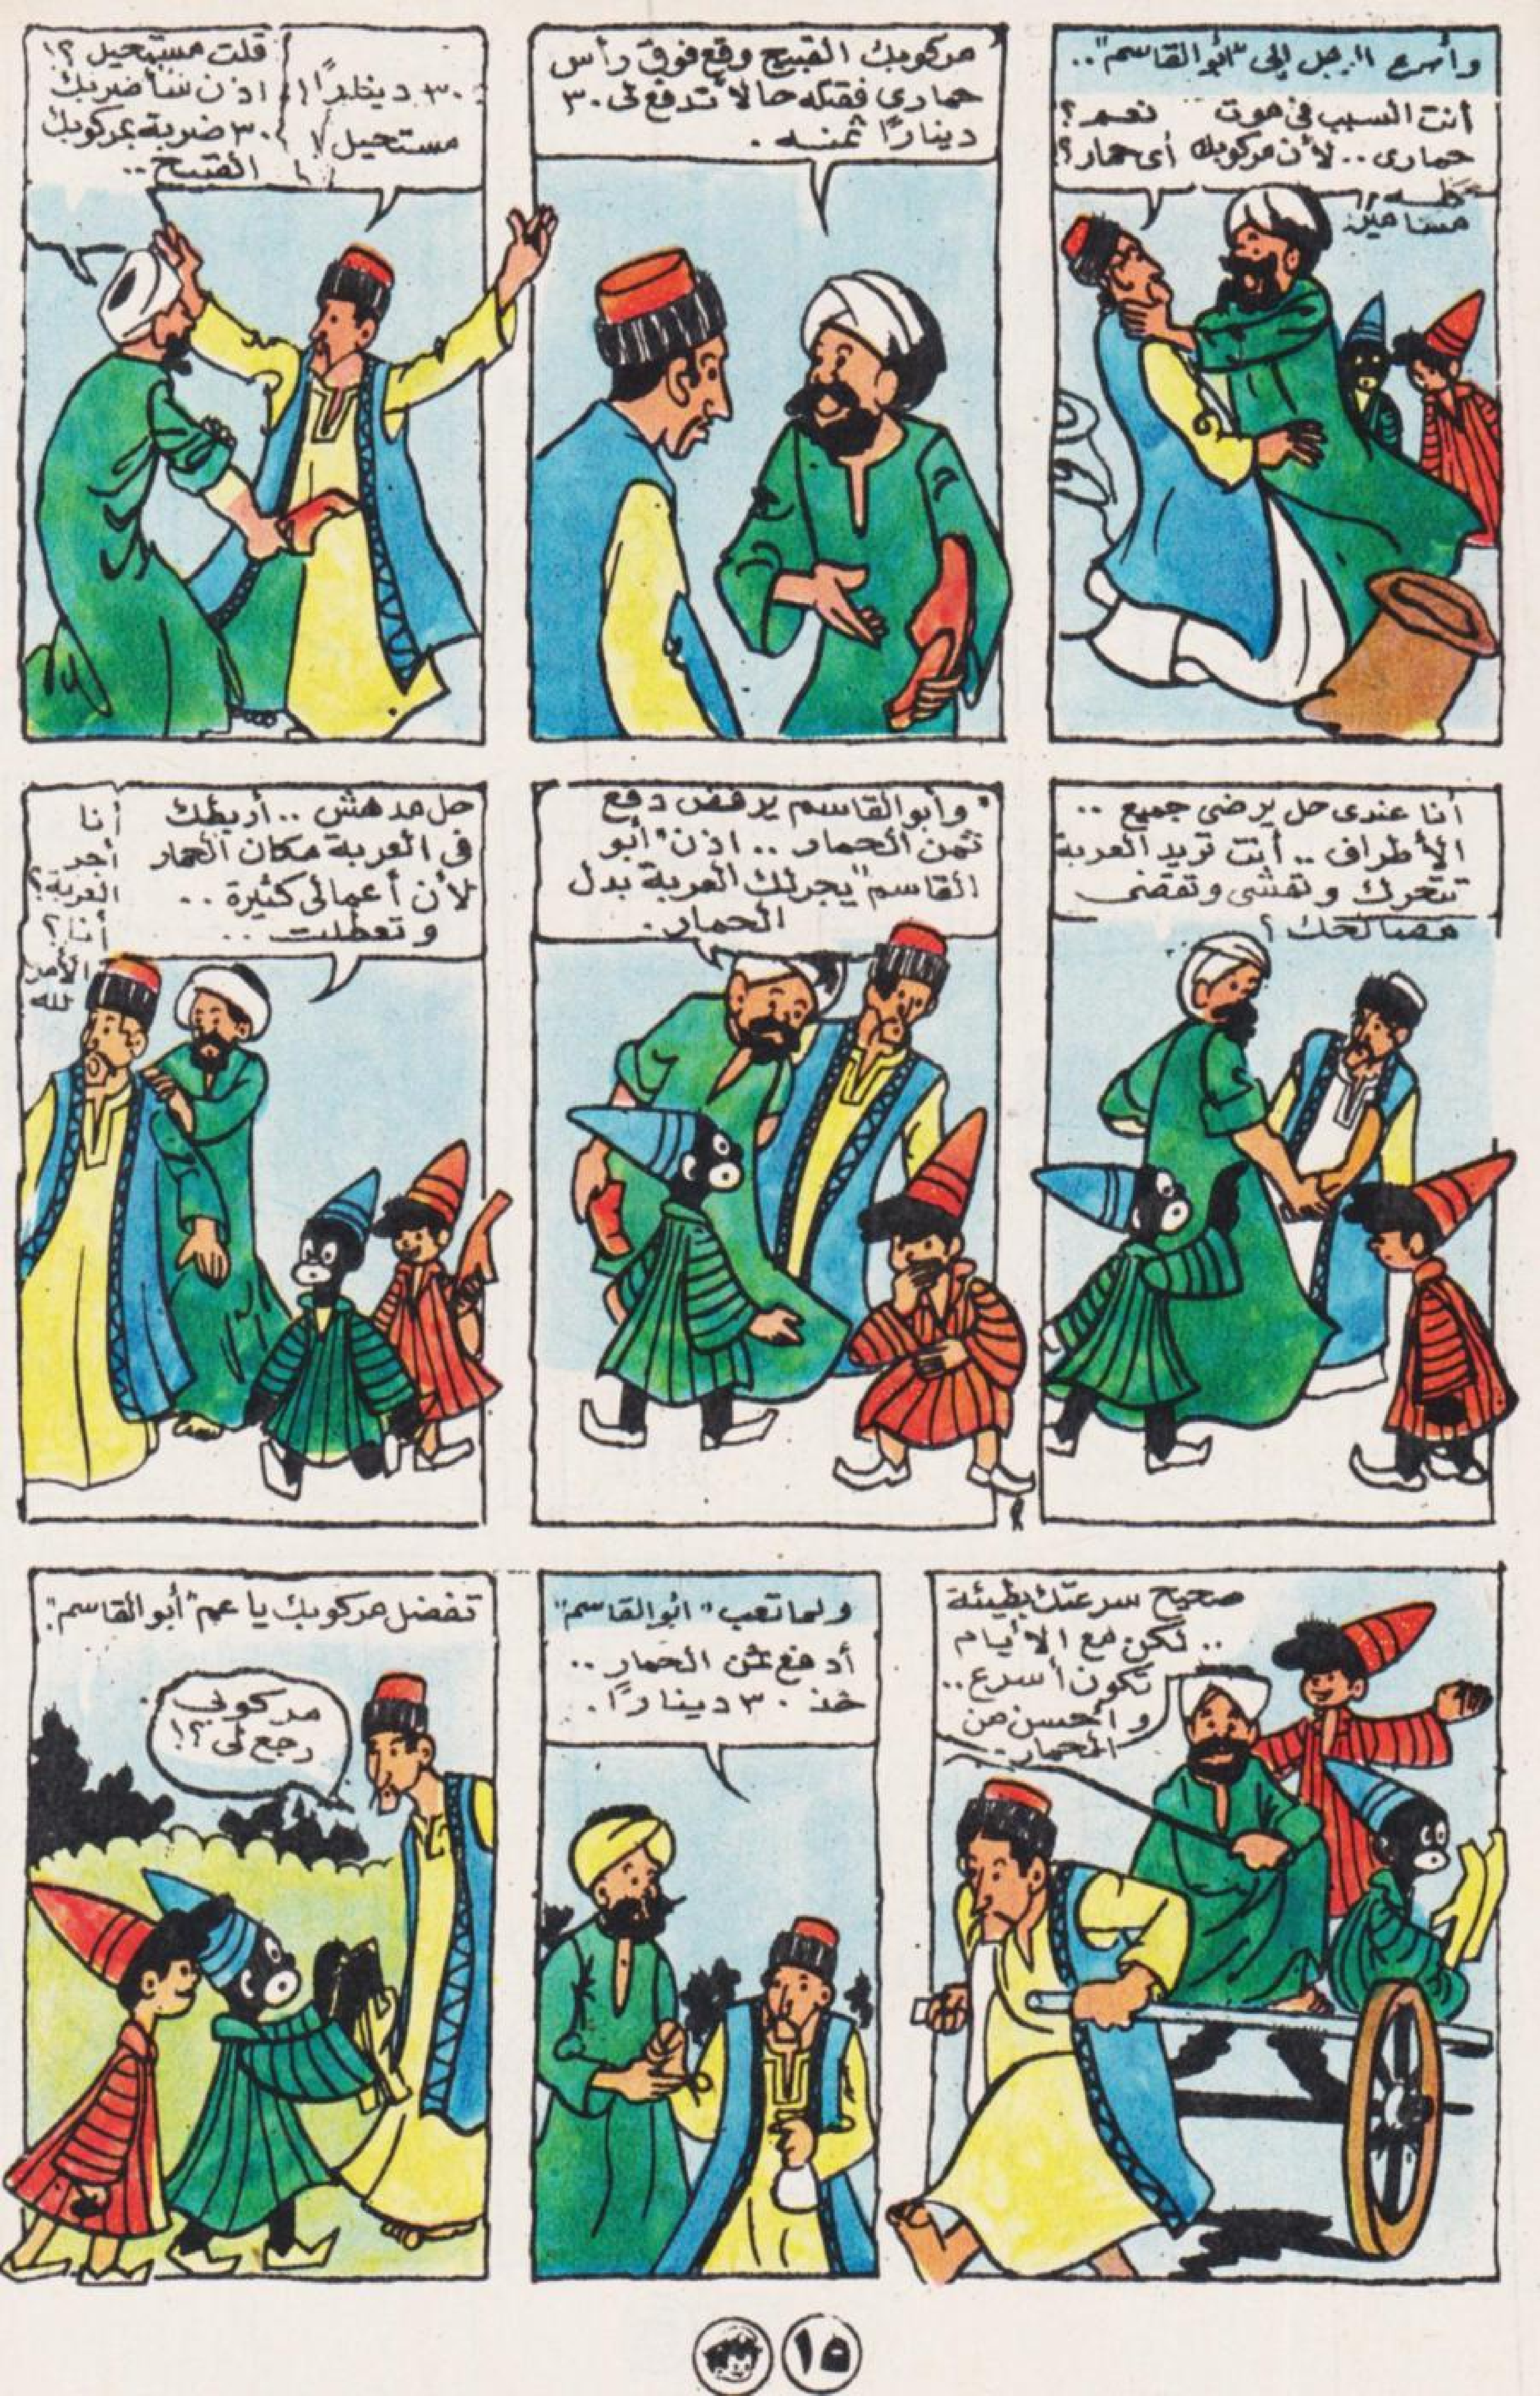 وأسرع الرجل إلى "أبو القاسم"..
أنت السبب في موت
حماري.. لأن مركوبك
كله
مسامير.
نعم؟
أي حمار؟
مركوبك القبيح وقع فوق رأس
حماري فقتله حالا تدفع لى ٣٠
دينارًا ثمنه.
٣٠ دينارًا!
مستحيل!
قلت مستحيل؟!
اذن سأضربك
٣٠ ضربة بمركوبك
القبيح..
أنا عندى حل يرضى جميع ..
الأطراف .. أنت تريد العربة
تتحرك وتمشى وتقضى
مصالحك؟
وأبو القاسم يرفض دفع
ثمن الحمار .. اذن "أبو
القاسم" يجر لك العربة بدل
الحمار.
حل مدهش .. أربطك
فى العربة مكان الحمار
لأن أعمالى كثيرة ..
وتعطلت ..
أنا
أجر
العربة؟
أنا؟
الأمر
لله
صحيح سرعتك بطيئة
.. لكن مع الأيام
تكون أسرع ..
و أحسن من
الحمار..
ولما تعب "أبو القاسم"
أدفع ثمن الحمار ..
خذ ٣٠ دينارًا.
تفضل مركوبك يا عم "أبو القاسم".
مركوبى
رجع لى؟!
١٥